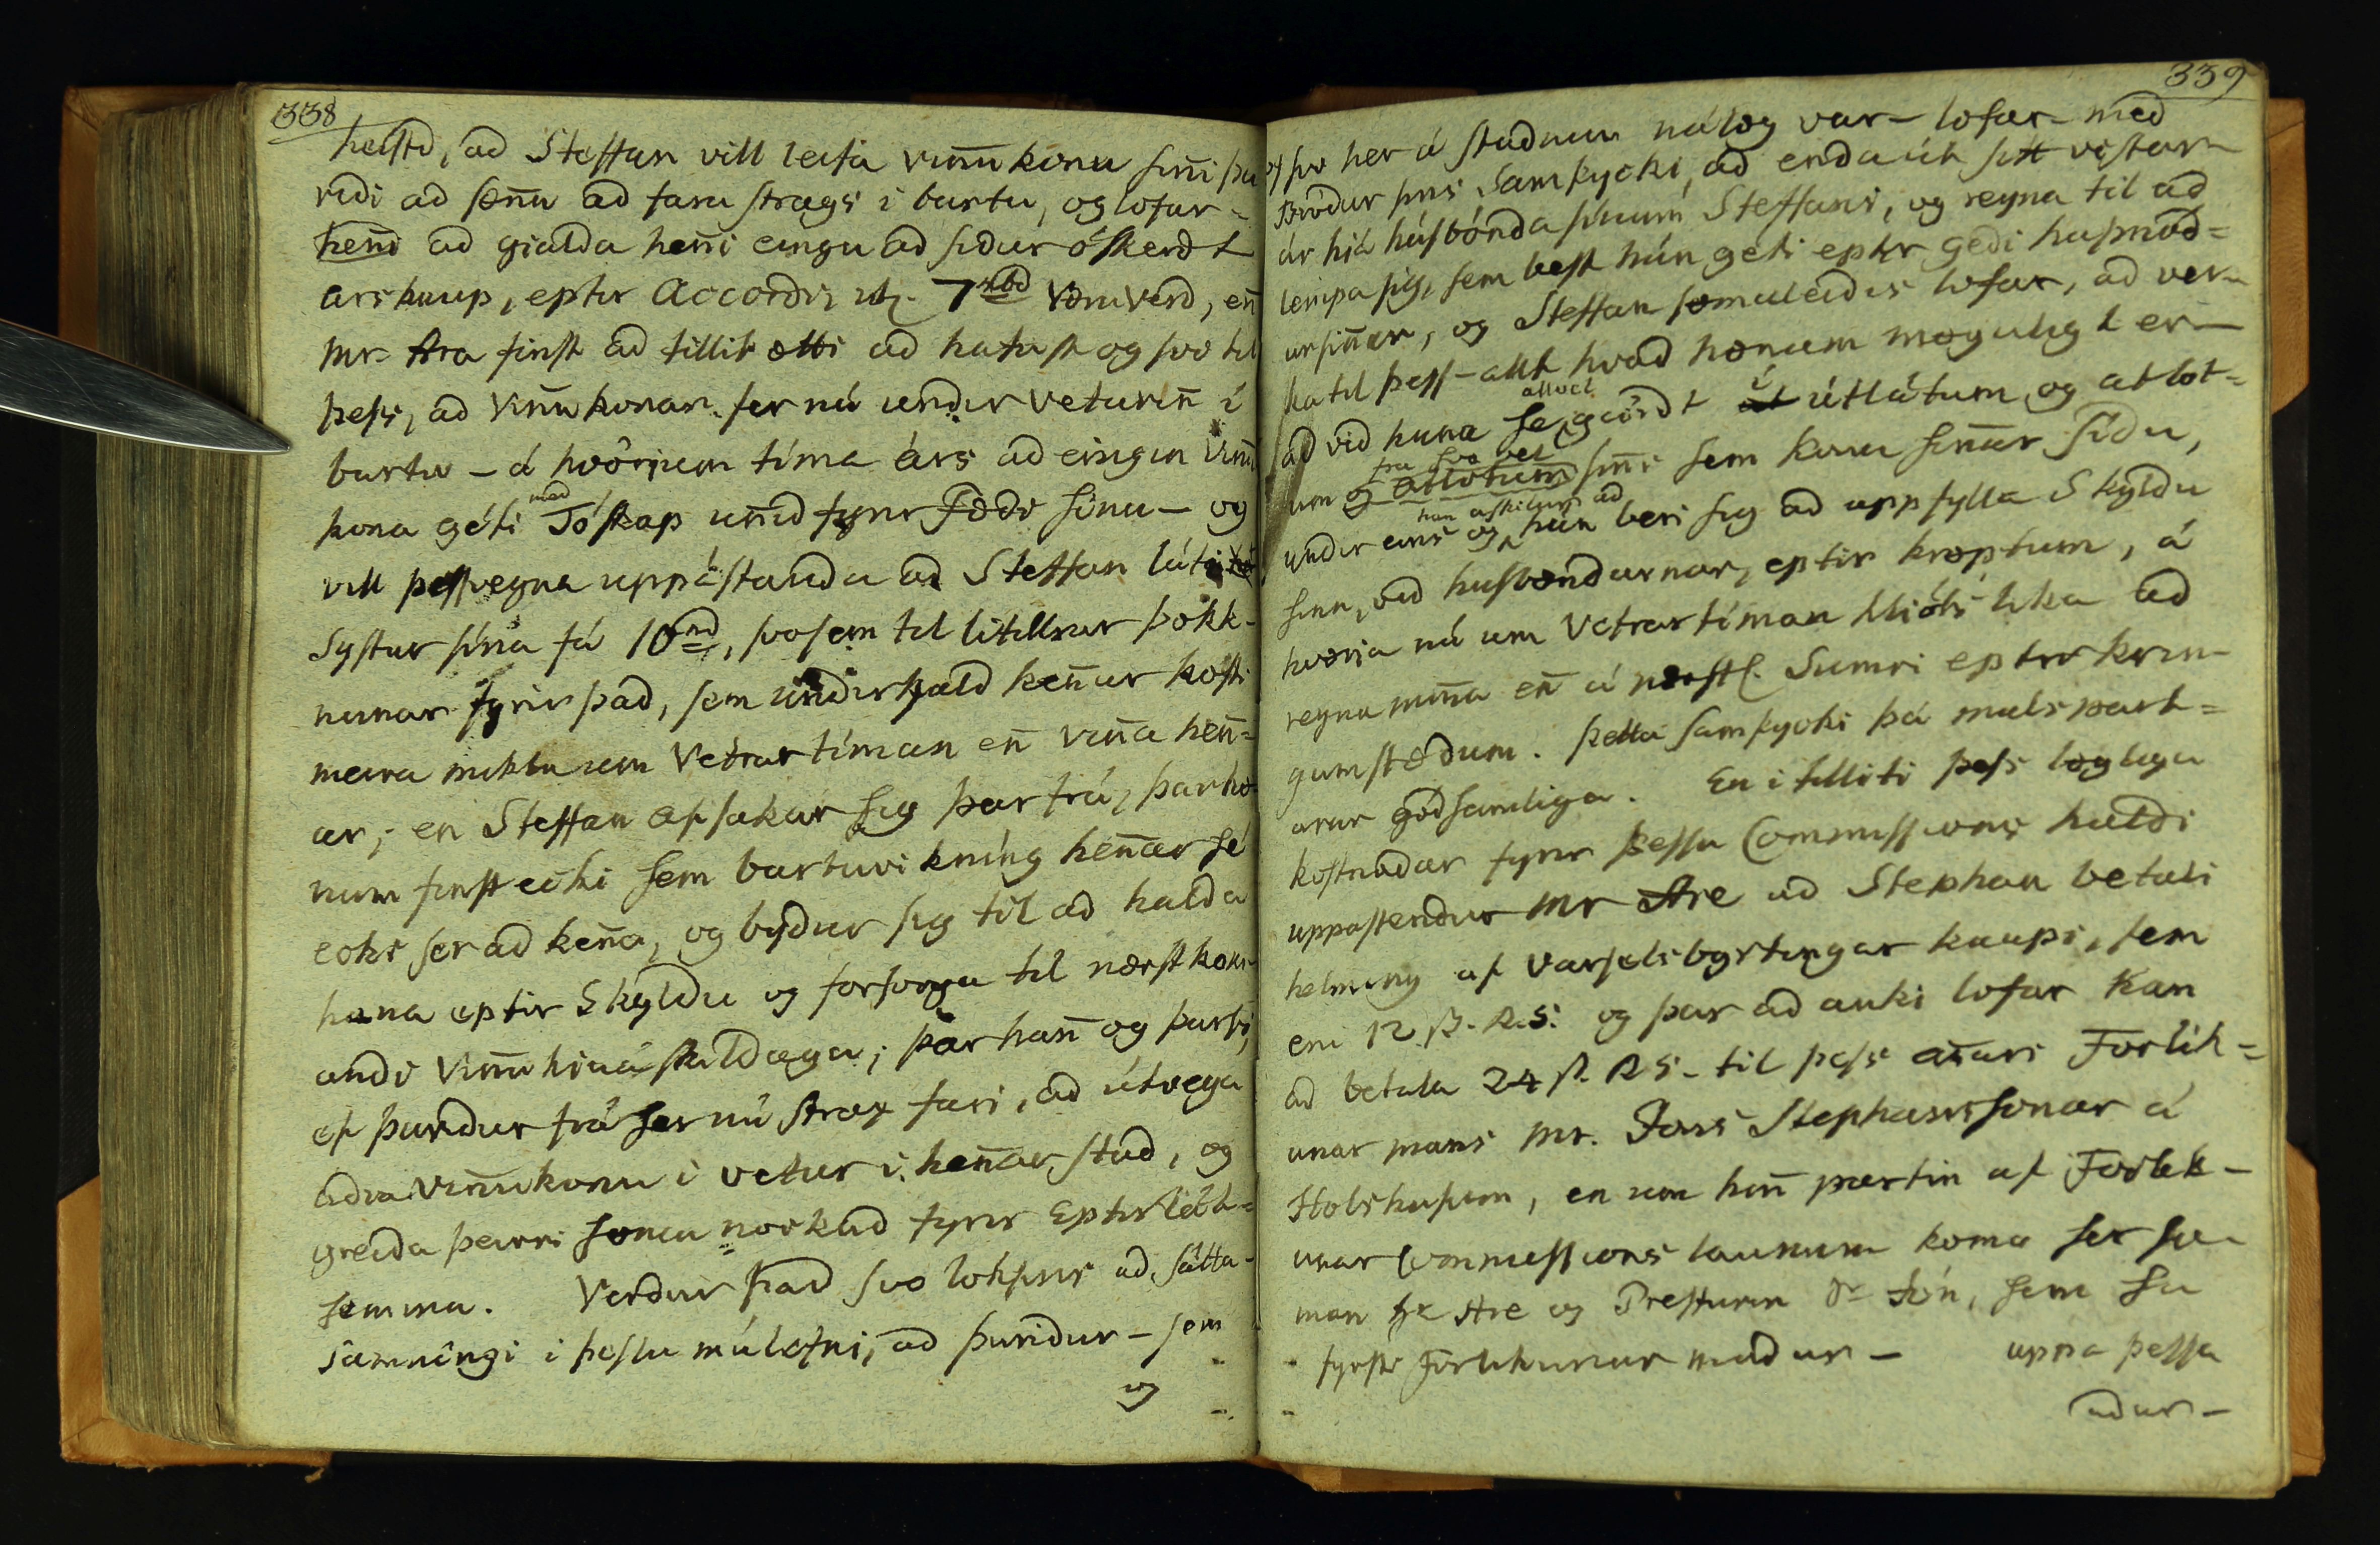 338
helstd, ad Steffan vill leifa vinnukonu sinni þu
ridi ad sönnu ad fara strags i burtu, og lofar=
henni ad gialda henni eingu ad sidur óskerdt
árs kaup, epter Accordi, 7 rbd vöruverd, enn
Mr. Ara finst ad tillit ætti ad hafast og svo til
þess, ad vinnukonan fer nú undir veturinn í
burtu – á hvörjum tíma árs ad eingin vinnu
kona géti med Tóskap unnid fyrir Fædi sínu – og
vill þessvegna uppástanda ad Steffan láti
Systur sína fá 10 rd, svosem til litillrar þokk-
nunar fyrir þad, sem undirhald hennar kosti
meira miklu um Vetrar tíman enn vinna henn=
ar; en Steffan afsakar sig þar frá, þar hö
num finst ecki sem burtuvikning hennar sé
ecki sér ad kenna, og bydur sig til ad halda
hana eptir Skyldu og forsorga til nærstkom-
andi vinnuhiúaskildaga; þar hann og þurfi,
ef þuridur frá ser nú strax fari, ad útvega
adra vinnukonu i vetur i hennar stad, og
greida þeirri somu nockud fyrir Epterlát=
semina. Verdur þad svo loksins ad sátta-
samningi i þessu málefni, ad þuridur – sem
og
og svo her á stadnum nálæg var – lofar – med
Brodur síns Samþycki, ad enda út sitt vistar=
ár hiá húsbónda sínum Steffani, og reyna til ad
lempa sig, sem best hún géti epter gedi husmód=
ursinnar, og Steffan sömuleidis lofar, ad ver-
ka til þess – allt hvad hönum mögulegt er –
ad vid huna se allvel giördt í útlátum, og atlot=
um fra svo vel og atlotum sinni sem konu sinnar sídu,
under eins og han askilur ad hún beri sig ad uppfylla Skyldu
sinn, vid husbændurnar, eptir kröptum, á
hvöria nú um Vetrartíman Miólk lika ad
reyna minna enn á nærstl. Sumri epter krin-
gumstædum. þetta samþycki þá málspart=
arnir gódfamliga. En i tilliti þess löglega
kostnadar fyrir þessu Commissions haldi
uppastendur Mr Are ad Stephan betali
helming af varselsbyrtingar kaupi, sem
eru 12 s. R.S. og þar ad auki lofar han
ad betala 24 s. R.S. til þess annars Forlík=
unar mans Mr. Jons Stephanssonar á
Holshusum, en um hinn partin af Forlik-
unar Commissions launum koma ser sa-
man hr Are og Presturin Sr Jón, sem sa
fyrste Forlikunar madur – uppa þessa
adur –
339